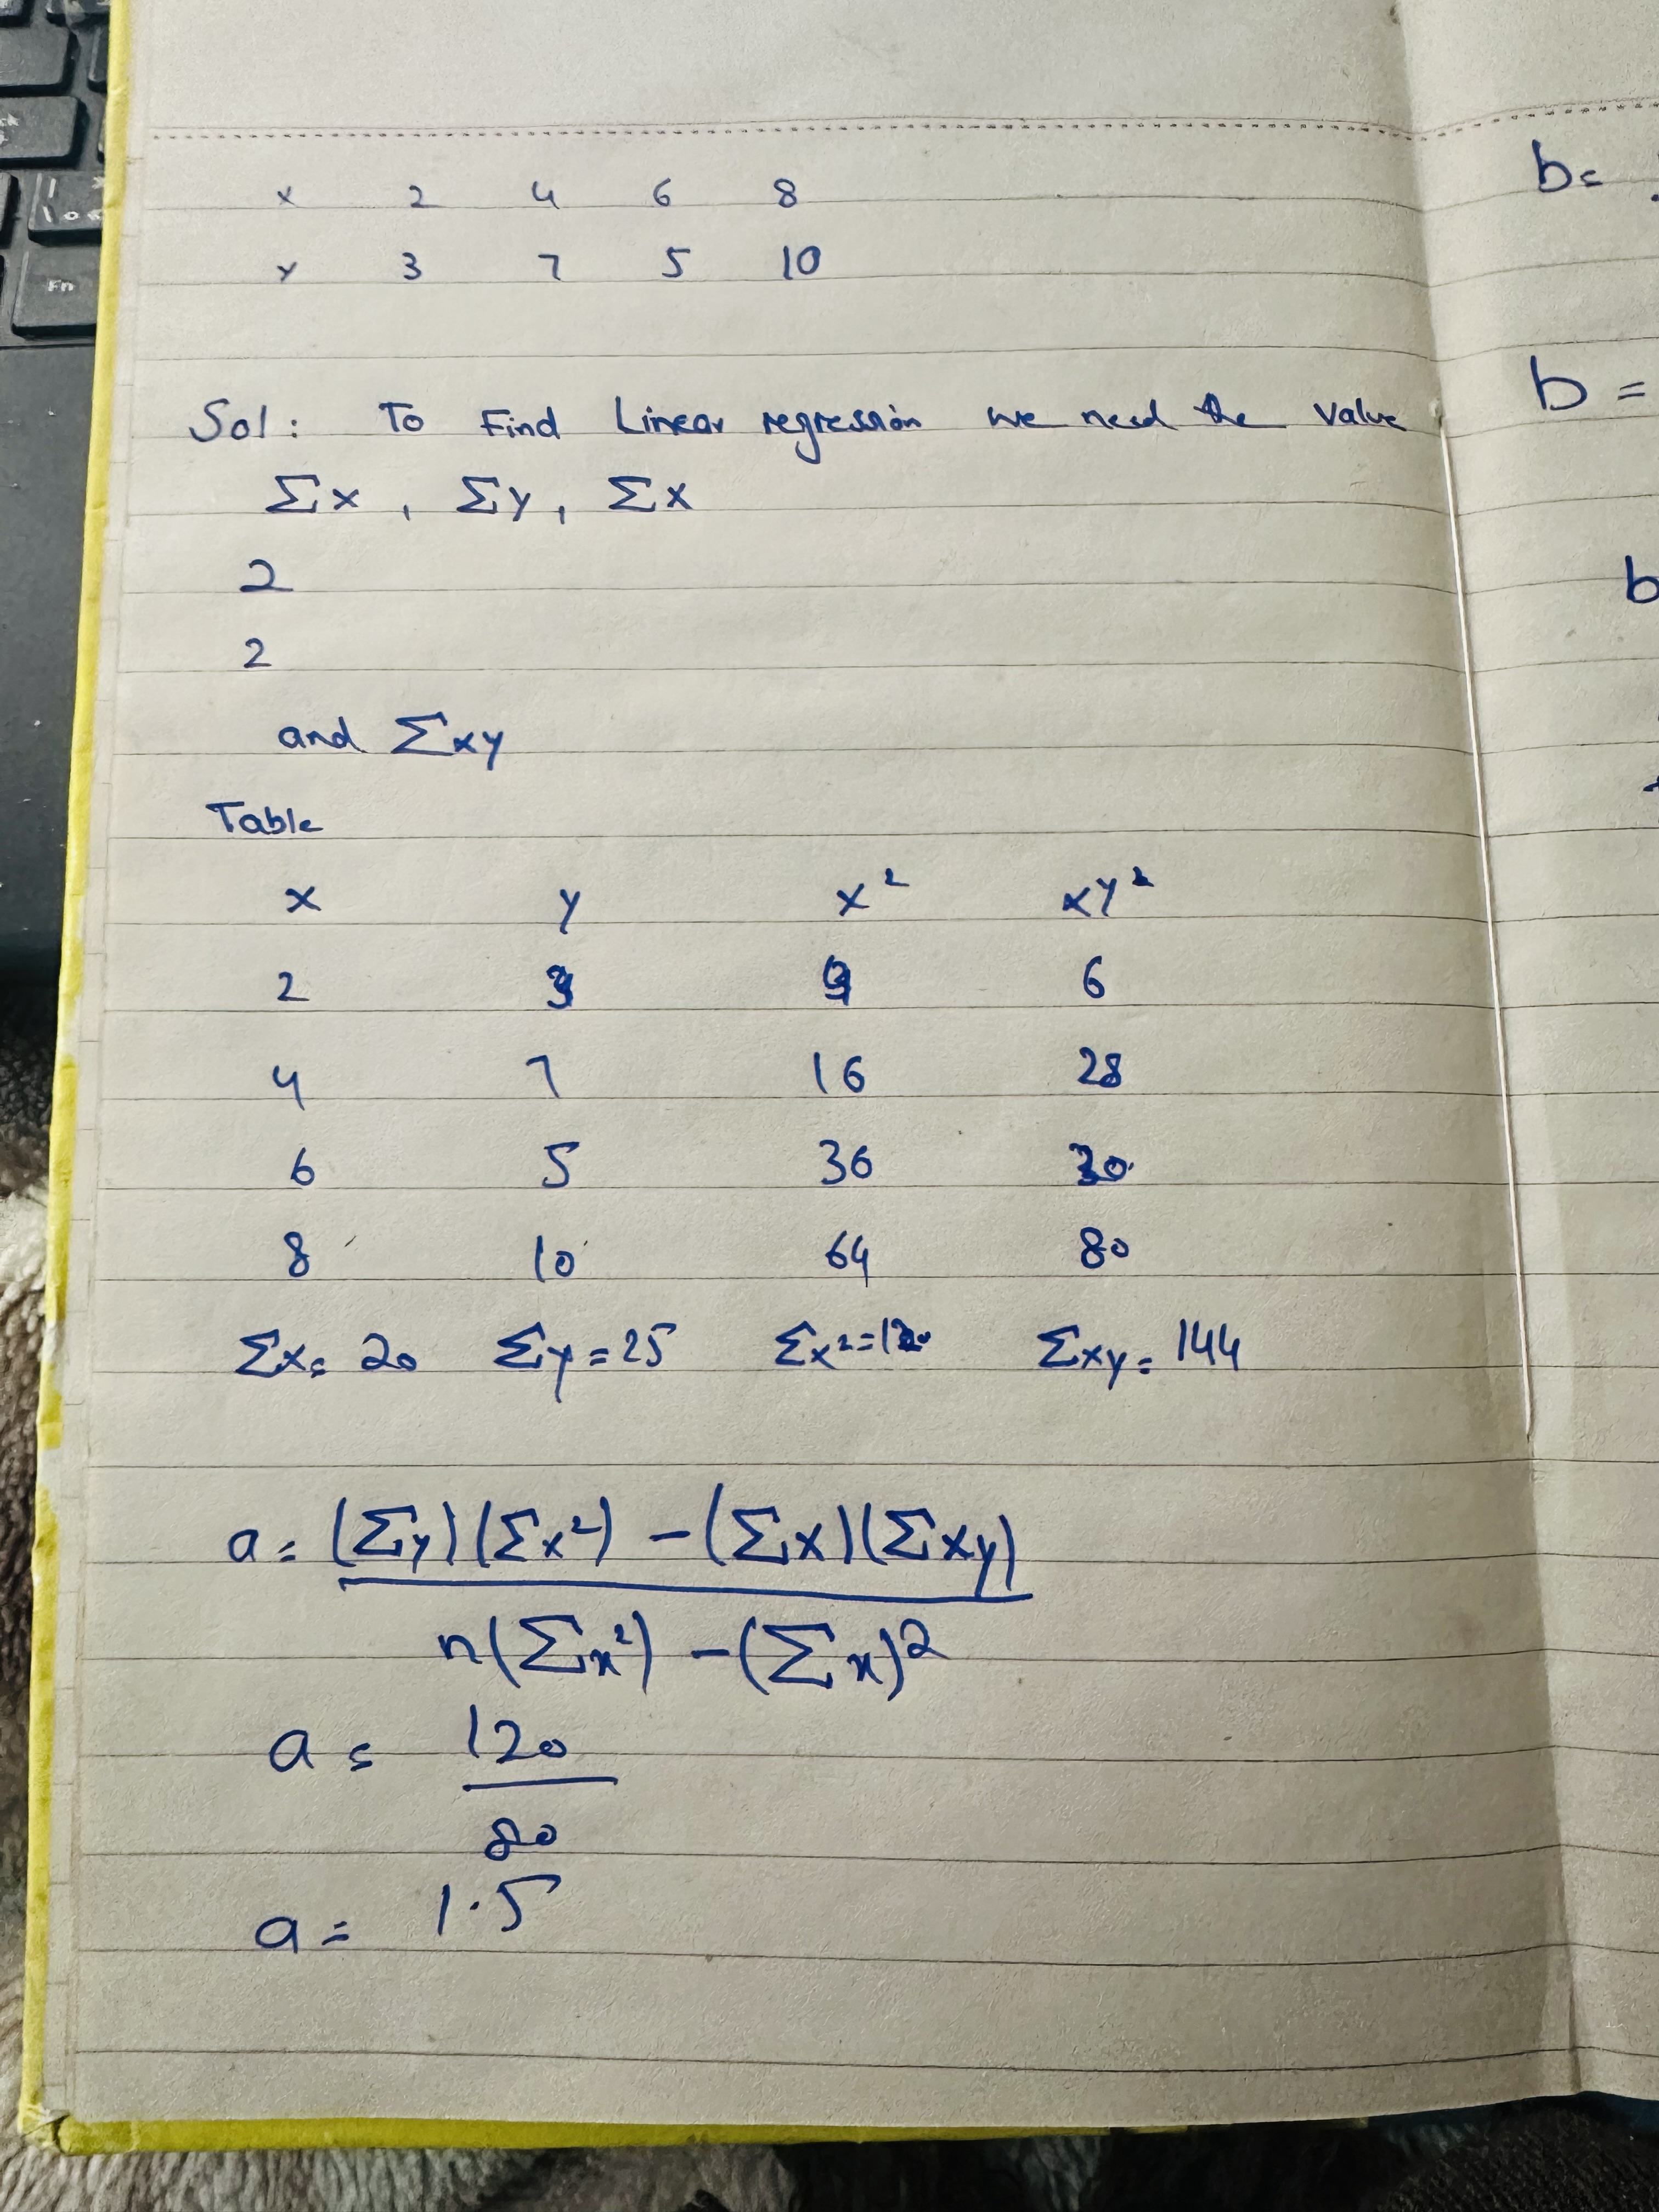 x 2 4 6 8
y 3 7 5 10
Sol: To Find Linear regression we need the value
Σx, Σy, Σx
2
2
and Σxy
Table
x y x² xy²
2 3 6
4 7 16 28
6 5 36 30
8 10 64 80
Σx= 20 Σy=25 Σx²=120 Σxy= 144
a= (Σy)(Σx²) - (Σx)(Σxy)
n(Σx²) - (Σx)2
a= 120
80
a= 1.5
b=
b =
b
Fn